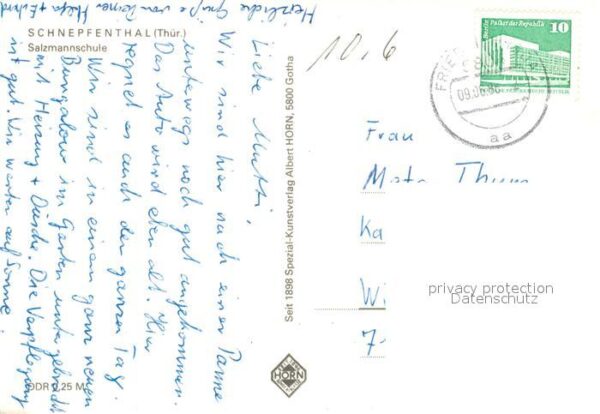 SCHNEPFENTHAL (Thür.)
Salzmannschule
Herzliche Grüße von Deiner Helga + Erhard
Liebe Mutti,
Wir sind hier nach einer Panne
unterwegs noch gut angekommen.
Das Auto wird eben alt. Hier
regnet es auch den ganzen Tag.
Wir sind in einem ganz neuen
Bungalow im Garten untergebracht
mit Heizung + Dusche. Die Verpflegung
ist gut. Wir warten auf Sonne.
DDR 0,25 M
Seit 1898 Spezial-Kunstverlag Albert HORN, 5800 Gotha
HORN
10.6
Berlin Palast der Republik
10
FRIE
09.06.80
aa
Frau
Ka
Wi
7-
privacy protection
Datenschutz